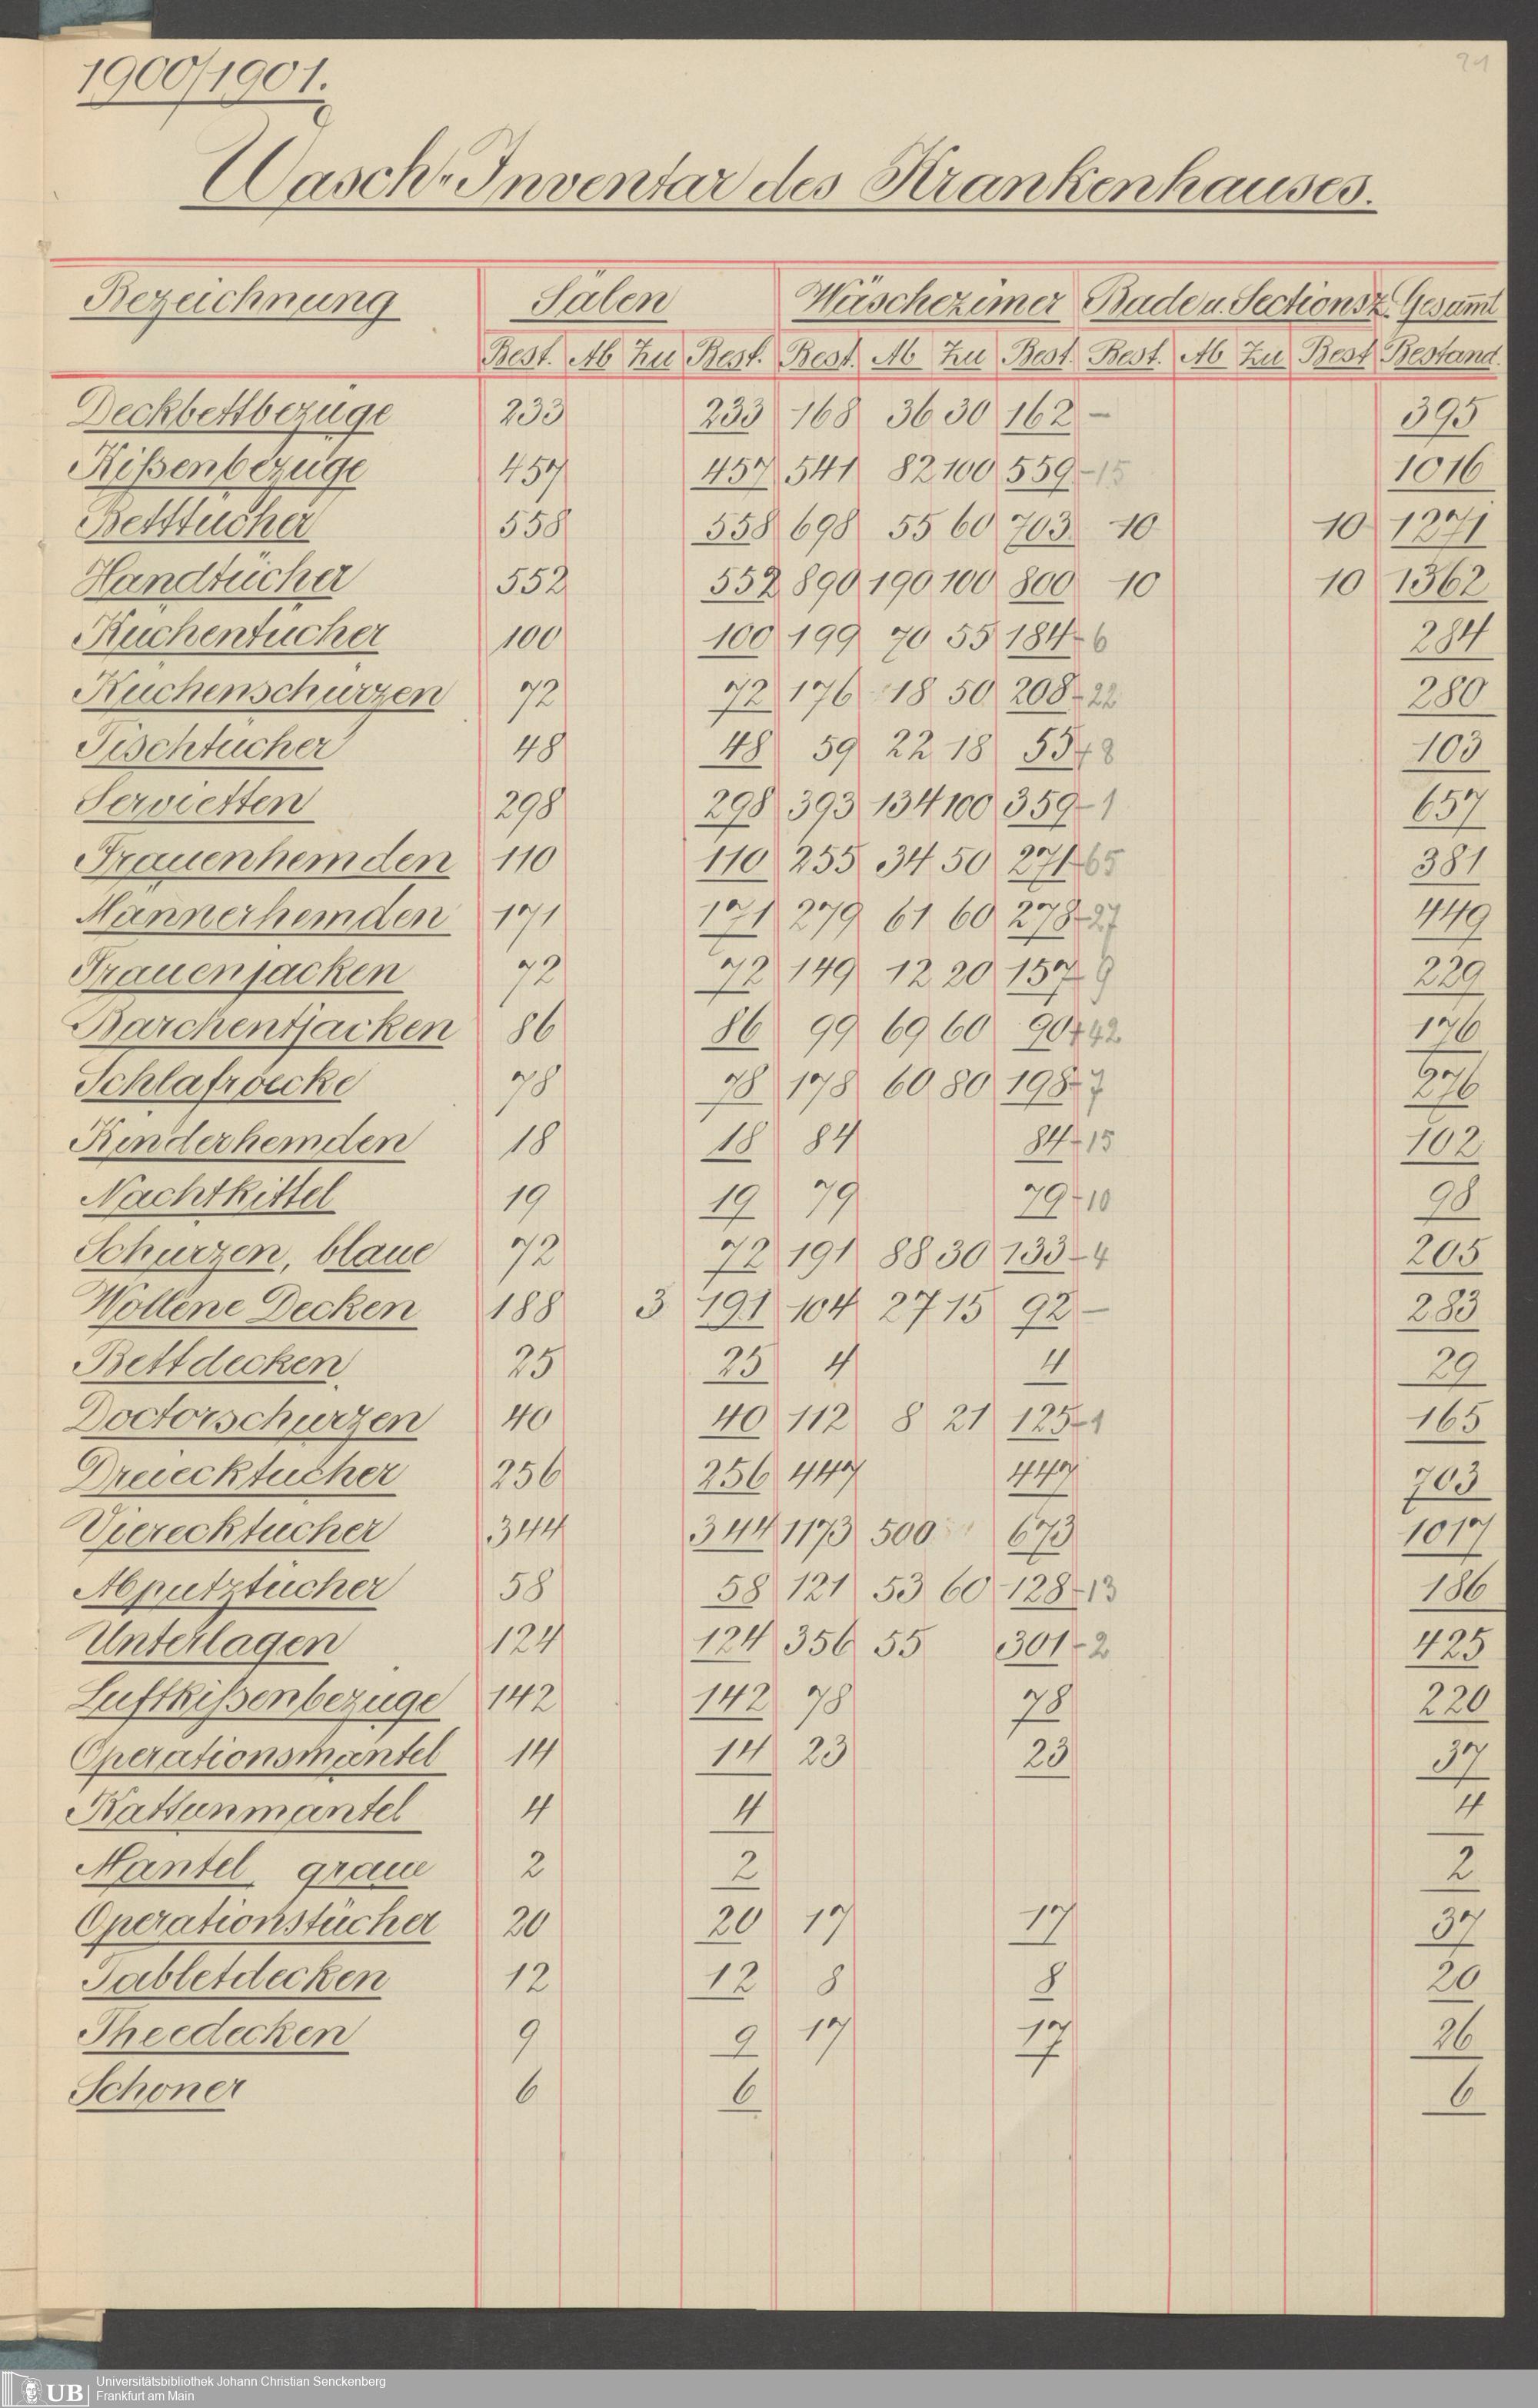 21
1900/1901.
Wasch-Inventar des Krankenhauses.
Bezeichnung Sälen Wäschezimer Bade u. Sectionsz. Gesam̄t
Best. Ab Zu Best. Best. Ab Zu Best. Best. Ab Zu Best Bestand.
Deckbettbezüge 233 233 168 36 30 162 - 395
Kißenbezüge 457 457 541 82 100 559 -15 1016
Betttücher 558 558 698 55 60 703 10 10 1271
Handtücher 552 552 890 190 100 800 10 10 1362
Küchentücher 100 100 199 70 55 184 -6 284
Küchenschürzen 72 72 176 18 50 208 -22 280
Tischtücher 48 48 59 22 18 55 +8 103
Servietten 298 298 393 134 100 359 -1 657
Frauenhemden 110 110 255 34 50 271 -65 381
Männerhemden 171 171 279 61 60 278 -27 449
Frauenjacken 72 72 149 12 20 157 -9 229
Barchentjacken 86 86 99 69 60 90 +42 176
Schlafroecke 78 78 178 60 80 198 -7 276
Kinderhemden 18 18 84 84 -15 102
Nachtkittel 19 19 79 79 -10 98
Schürzen, blaue 72 72 191 88 30 133 -4 205
Wollene Decken 188 3 191 104 27 15 92 - 283
Bettdecken 25 25 4 4 29
Doctorschürzen 40 40 112 8 21 125 -1 165
Dreiecktücher 256 256 447 447 703
Vierecktücher 344 344 1173 500 673 1017
Abputztücher 58 58 121 53 60 128 -13 186
Unterlagen 124 124 356 55 301 -2 425
Luftkißenbezüge 142 142 78 78 220
Operationsmäntel 14 14 23 23 37
Kattunmäntel 4 4 4
Mäntel graue 2 2 2
Operationstücher 20 20 17 17 37
Tabletdecken 12 12 8 8 20
Theedecken 9 9 17 17 26
Schoner 6 6 6
UB Universitätsbibliothek Johann Christian Senckenberg
Frankfurt am Main